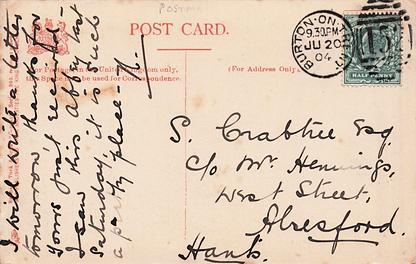 POSTMA
POST CARD.
For Postage in the United Kingdom only,
this Space may be used for Correspondence.
(For Address Only.)
BURTON-ON-
9.30PM
JU 20
04
HALF PENNY
I will write a letter
tomorrow thanks for
yours just recd.
I saw this Abbey last
Saturday, it is such
a pretty place.
S. Crabtree Esq
c/o Mr. Hennings,
West Street,
Alresford.
Hants.